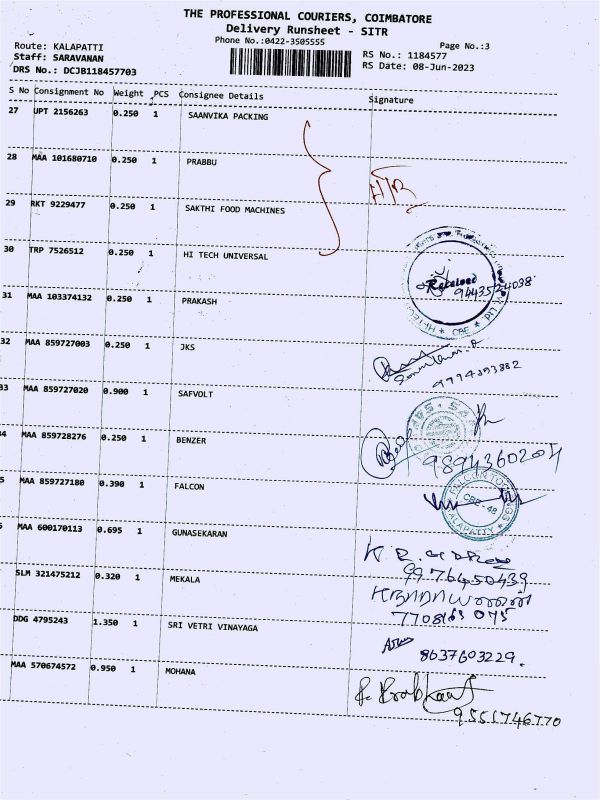 THE PROFESSIONAL COURIERS, COIMBATORE
Delivery Runsheet - SITR
Phone No.:0422-3505555
Page No.:3
Route: KALAPATTI
Staff: SARAVANAN
DRS No.: DCJB118457703
RS No.: 1184577
RS Date: 08-Jun-2023
S No Consignment No Weight PCS Consignee Details Signature
27 UPT 2156263 0.250 1 SAANVIKA PACKING
28 MAA 101680710 0.250 1 PRABBU
29 RKT 9229477 0.250 1 SAKTHI FOOD MACHINES
30 TRP 7526512 0.250 1 HI TECH UNIVERSAL
Received
9443524038
31 MAA 103374132 0.250 1 PRAKASH
32 MAA 859727003 0.250 1 JKS
9794393882
33 MAA 859727020 0.900 1 SAFVOLT
34 MAA 859728276 0.250 1 BENZER
9894360204
5 MAA 859727180 0.390 1 FALCON
CBE - 48
KALAPATTY
MAA 600170113 0.695 1 GUNASEKARAN
9976450439
SLM 321475212 0.320 1 MEKALA
7708163 075
DDG 4795243 1.350 1 SRI VETRI VINAYAGA
8637603229.
MAA 570674572 0.950 1 MOHANA
9551746770